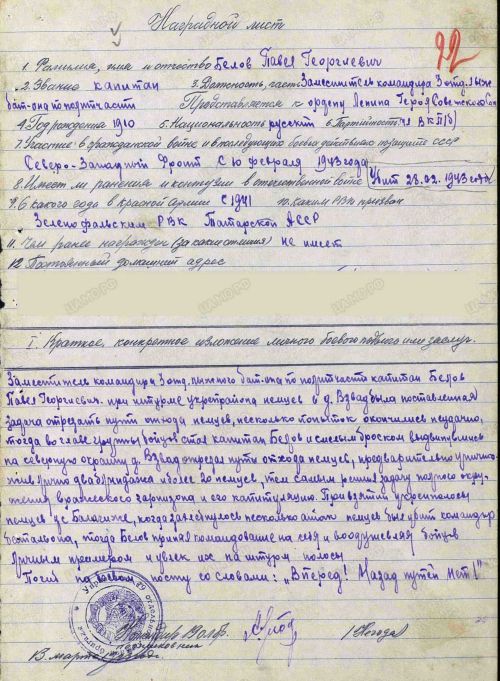 Наградной лист
22
1. Фамилия, имя и отчество Белов Павел Георгиевич
2. Звание капитан 3. Должность, часть Заместитель командира 3 отд. лыжн.
бат-она по политчасти Представляется к ордену Ленина Героя Советского
4. Год рождения 1910 5. Национальность русский 6. Партийность чл ВКП(б)
7. Участие в гражданской войне и в последующих боевых действиях по защите СССР
Северо-Западный Фронт с 10 февраля 1943 года
8. Имеет ли ранения и контузии в отечественной войне Убит 28.02.1943 года
9. С какого года в Красной Армии с 1941 10. Каким РВК призван
Зеленодольским РВК Татарской АССР
11. Чем ранее награжден (за какие отличия) не имеет
12. Постоянный домашний адрес
I. Краткое, конкретное изложение личного боевого подвига или заслуг.
Заместитель командира 3 отд. лыжного бат-она по политчасти капитан Белов
Павел Георгиевич при штурме укрепрайона немцев в д. Взвад была поставленная
задача отрезать пути отхода немцев, несколько попыток окончились неудачно,
тогда во главе группы бойцов стал капитан Белов и смелым броском выдвинувшись
на северную окраину д. Взвад отрезал пути отхода немцев, предварительно уничто-
жив лично два блиндажа и более 20 немцев, тем самым решил задачу полного окру-
жения вражеского гарнизона и его капитуляцию. При взятии укрепполосы
немцев у с. Балагиже, когда захлебнулось несколько атак немцев был убит командир
батальона, тогда Белов принял командование на себя и воодушевляя бойцов
личным примером и увлек их на штурм полосы
Погиб на посту со словами: „Вперед! Назад путей нет!"
Полковник
(Негода)
В. марта